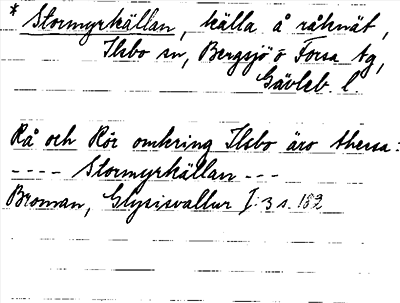 * Stormyrkällan, källa å råknät,
Ilsbo sn, Bergsjö o Forsa tg,
Gävleb. l.
Rå och Rör omkring Ilsbo äro thessa:
---- Stormyrkällan ---
Broman, Glysisvallur I: 3 s. 182